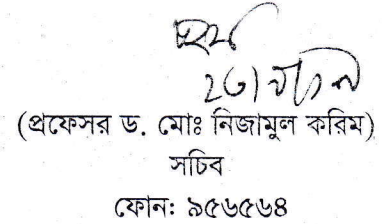 (প্রফেসর ড. মোঃ নিজামুল করিম)
সচিব
ফোন: ৯৫৬৫৬৪